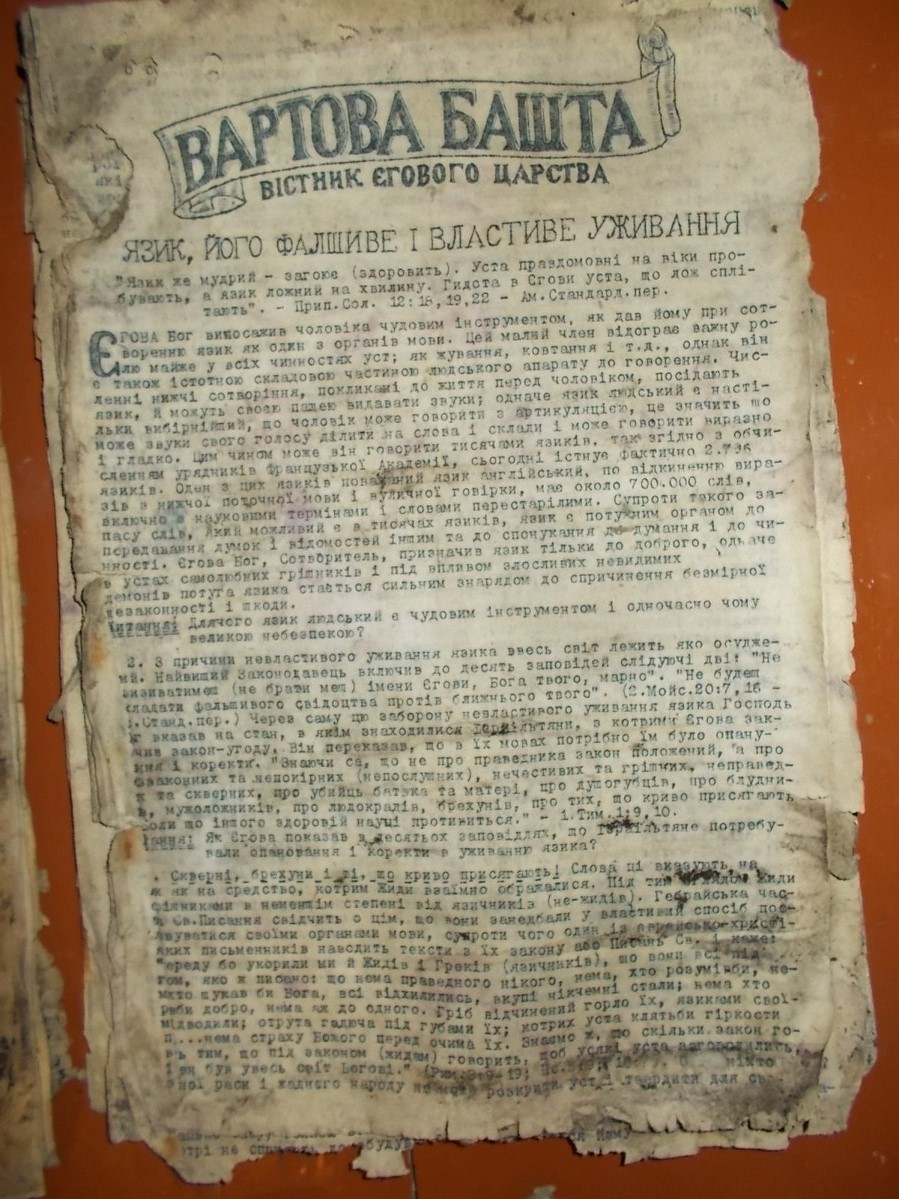 ВАРТОВА БАШТА
ВІСТНИК ЄГОВОГО ЦАРСТВА
ЯЗИК, ЙОГО ФАЛШИВЕ І ВЛАСТИВЕ УЖИВАННЯ
"Язик же мудрий - загоює (здоровить). Уста правдомовні на віки про-
бувають, а язик ложний на хвилину. Гидота в Єгови уста, що лож спλί-
тають". - Прип.Сол. 12:18,19,22 - Ам.Стандард.пер.
ЄГОВА Бог випосажив чоловіка чудовим інструментом, як дав йому при сот-
воренню язик як один з органів мови. Цей малий член відограє важну ро-
лю майже у всіх чинностях уст; як жування, ковтання і т.д., однак він
є також істотною складовою частиною людського апарату до говорення. Чис-
ленні нижчі сотворіння, покликані до життя перед чоловіком, посідають
язик, й можуть своєю пащею видавати звуки; одначе язик людський є насті-
льки вибірніший, що чоловік може говорити з артикуляцією, це значить що
може звуки свого голосу ділити на слова і склади і може говорити виразно
і гладко. Цим чином може він говорити тисячами язиків, так згідно з обчи-
сленням урядників Французької Академії, сьогодні істнує фактично 2.796
язиків. Один з цих язиків поважний язик англійський, по відкиненню вира-
зів з нижчої поточної мови і вуличної говірки, має около 700.000 слів,
включно з науковими термінами і словами перестарілими. Супроти такого за-
пасу слів, який можливий є в тисячах язиків, язик є потужним органом до
передавання думок і відомостей іншим та до спонукання до думання і до чи-
нності. Єгова Бог, Сотворитель, призначив язик тільки до доброго, одначе
в устах самолюбних грішників і під впливом злосливих невидимих
демонів потуга язика стається сильним знарядом до спричинення безмірної
незаконності і шкоди.
Питання: Длячого язик людський є чудовим інструментом і одночасно чому
великою небезпекою?
2. З причини невластивого уживання язика ввесь світ лежить яко осудже-
ий. Найвищий Законодавець включив до десять заповідей слідуючі дві: "Не
визиватимеш (не брати меш) імени Єгови, Бога твого, марно". "Не будеш
складати фальшивого свідоцтва протів ближнього твого". (2.Мойс.20:7,16 -
.Станд.пер.) Через саму цю заборону невластивого уживання язика Господь
г вказав на стан, в якім знаходилися Ізраільтяни, з котрими Єгова зак-
чив закон-угоду. Він переказав, що в їх мовах потрібно їм було опану-
ня і коректи. "Знаючи се, що не про праведника закон положений, а про
еззаконних та непокірних (непослушних), нечестивих та грішних, неправед-
х та скверних, про убийць батька та матері, про душогубців, про блудни-
в, мужоложників, про людокралів, брехунів, про тих, що криво присягають
оли що іншого здоровій науці противиться." - 1.Тим.1:9,10.
тання: Як Єгова показав в десятьох заповідлях, що Ізраільтяне потребу-
вали опановання і коректи в уживанню язика?
. Скверні, брехуни і ті, що криво присягають! Слова ці вказують на
як на средство, котрим Жиди взаїмно ображалися. Під тим оглядом Жиди
фішниками в неменшім степені від язичників (не-жидів). Гебрайська час-
Св.Писання свідчить о цім, що вони занедбали у властивий спосіб пос-
вуватися своїми органами мови, супроти чого один із
яких письменників наводить тексти з їх закону або Писань Св. і каже:
"ереду бо укорили ми й Жидів і Греків (язичників), що вони всі під
гом, яко ж писано: що нема праведного нікого, нема, хто розумів би, не-
хто шукав би Бога, всі відхилились, вкупі нікчемні стали; нема хто
робив добро, нема аж до одного. Гріб відчинений горло їх, язиками свої-
підводили; отрута гадюча під губами їх; котрих уста клятьби гіркости
п....нема страху Божого перед очима їх. Знаємо ж, що скільки закон го-
ть тим, що під законом (жидам) говорить, щоб усякі уста загородились,
і був увесь світ Богові." (Рим.3:9-19; ніхто
раси і жадного народу не може розкрити уст і твердити для